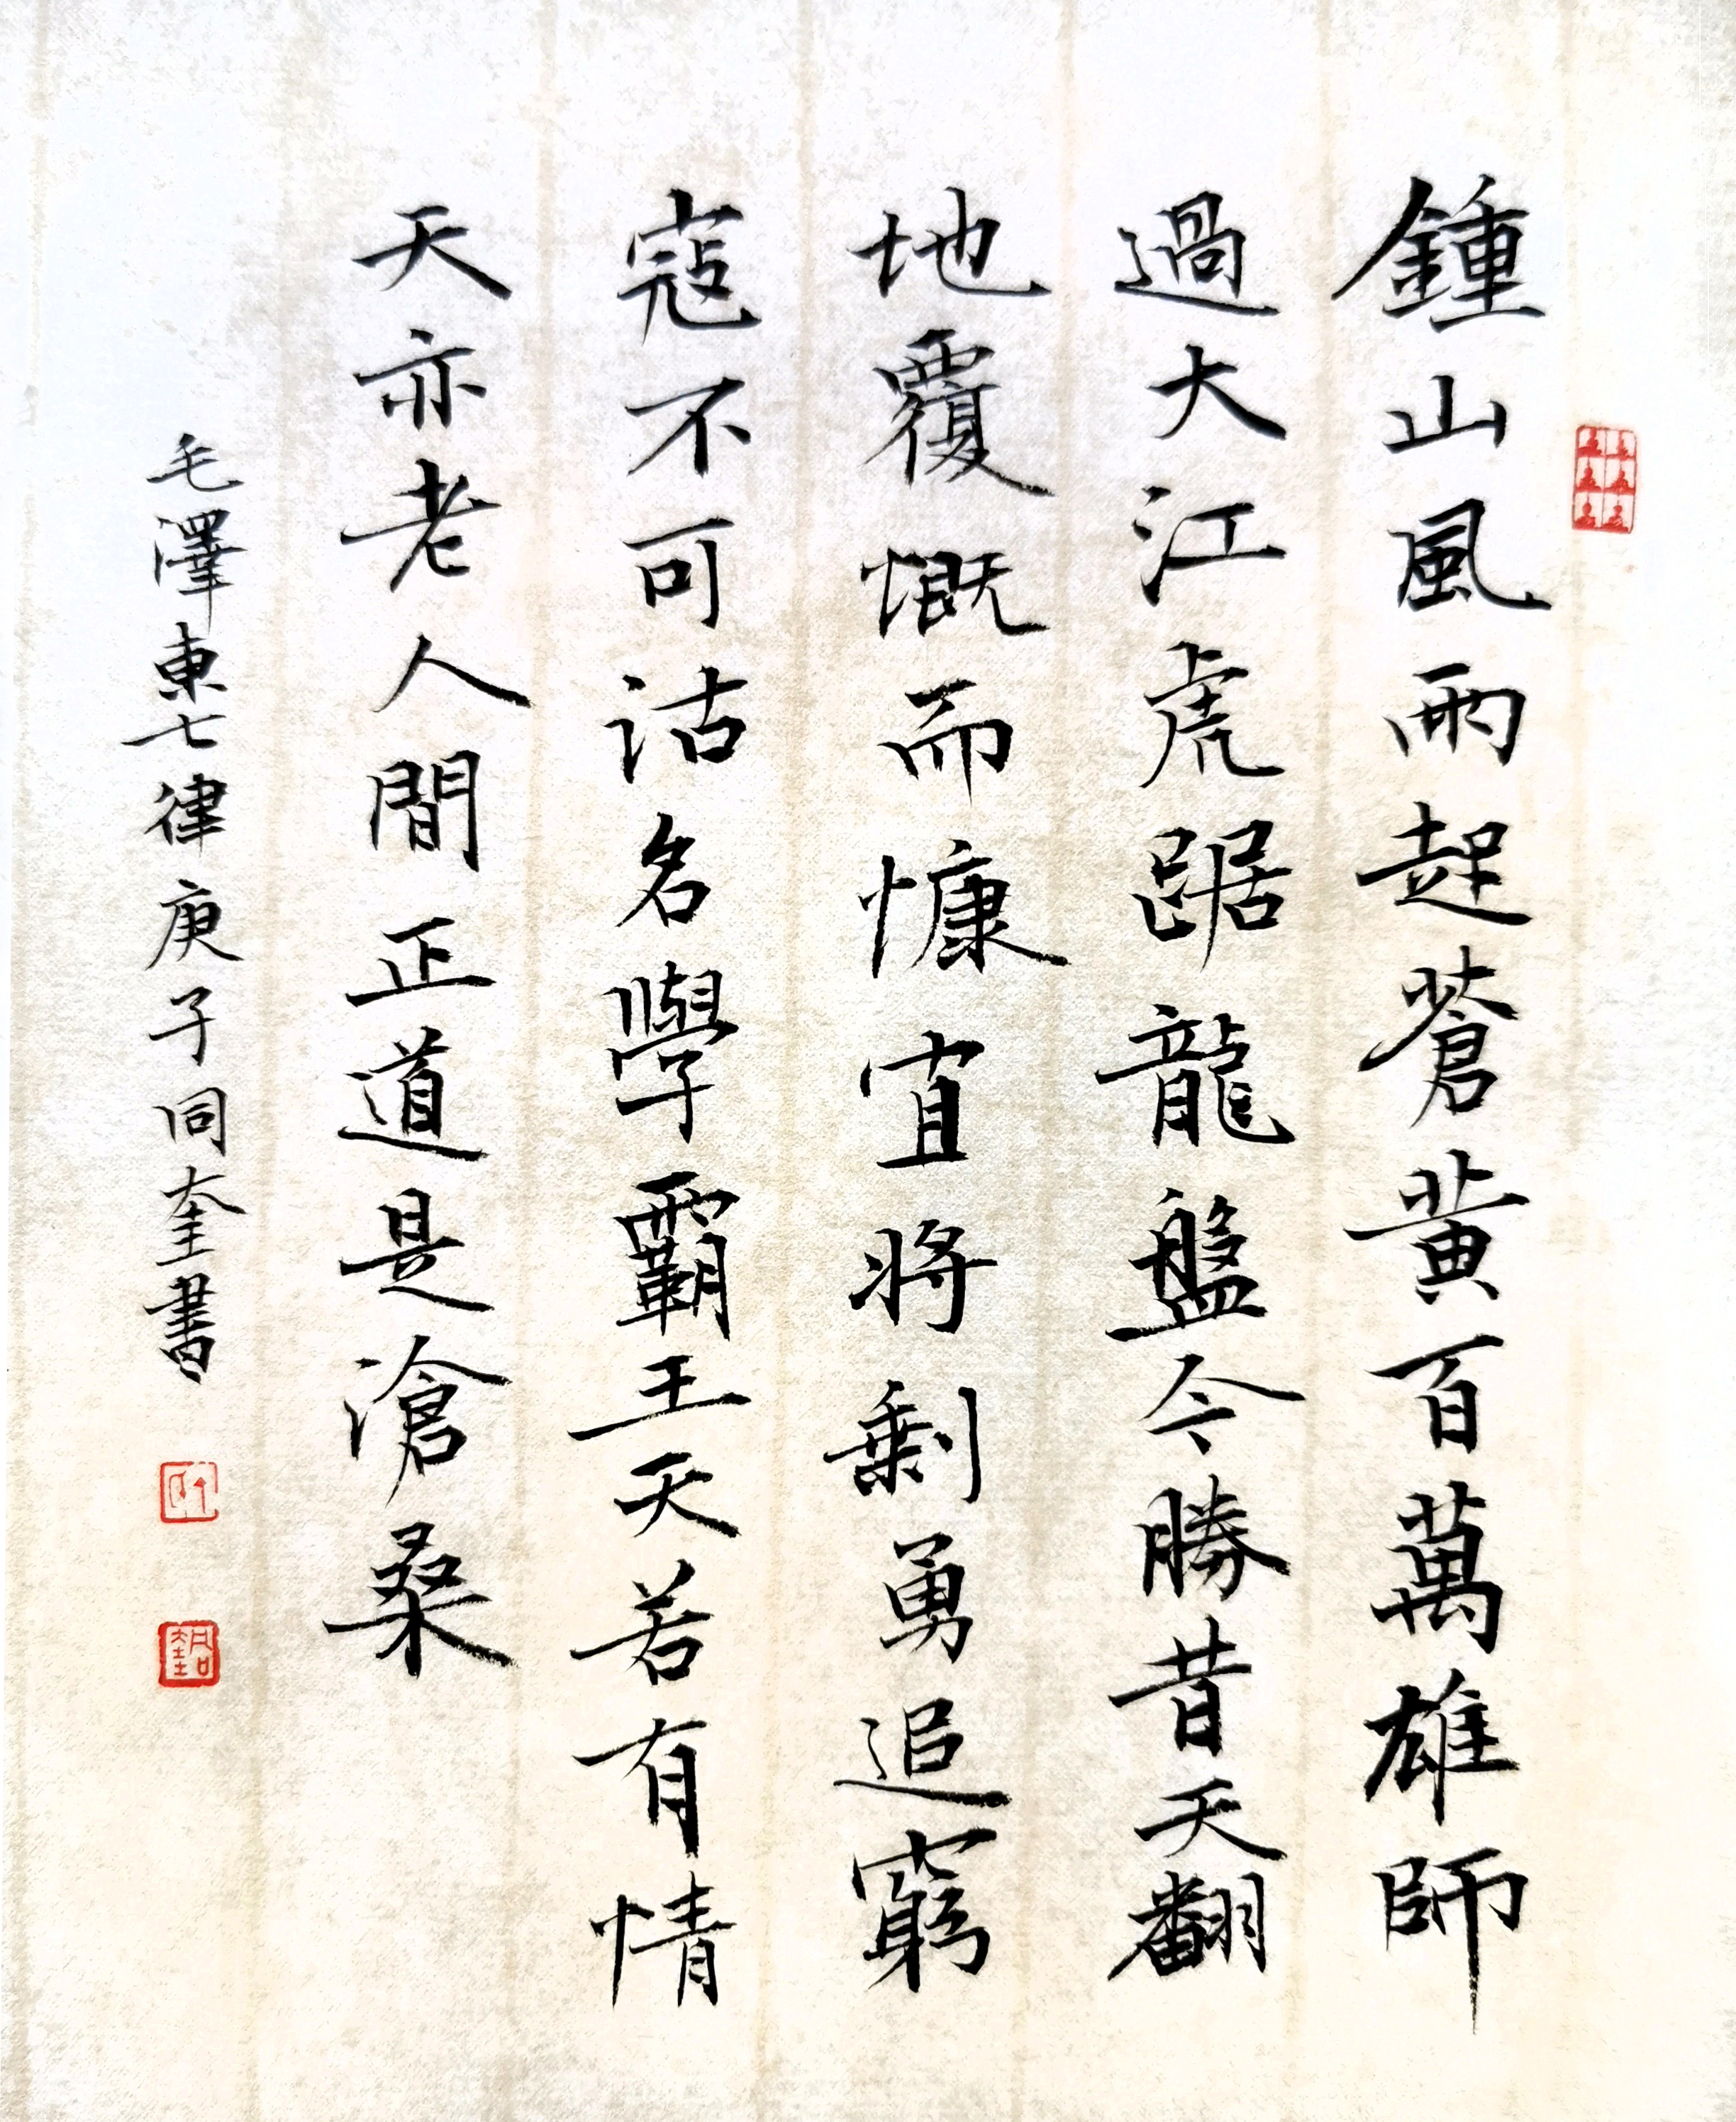 鍾山風雨起蒼黄百萬雄師
過大江虎踞龍盤今勝昔天翻
地覆慨而慷宜將剩勇追窮
寇不可沽名學霸王天若有情
天亦老人間正道是滄桑
毛澤東七律庚子同奎書